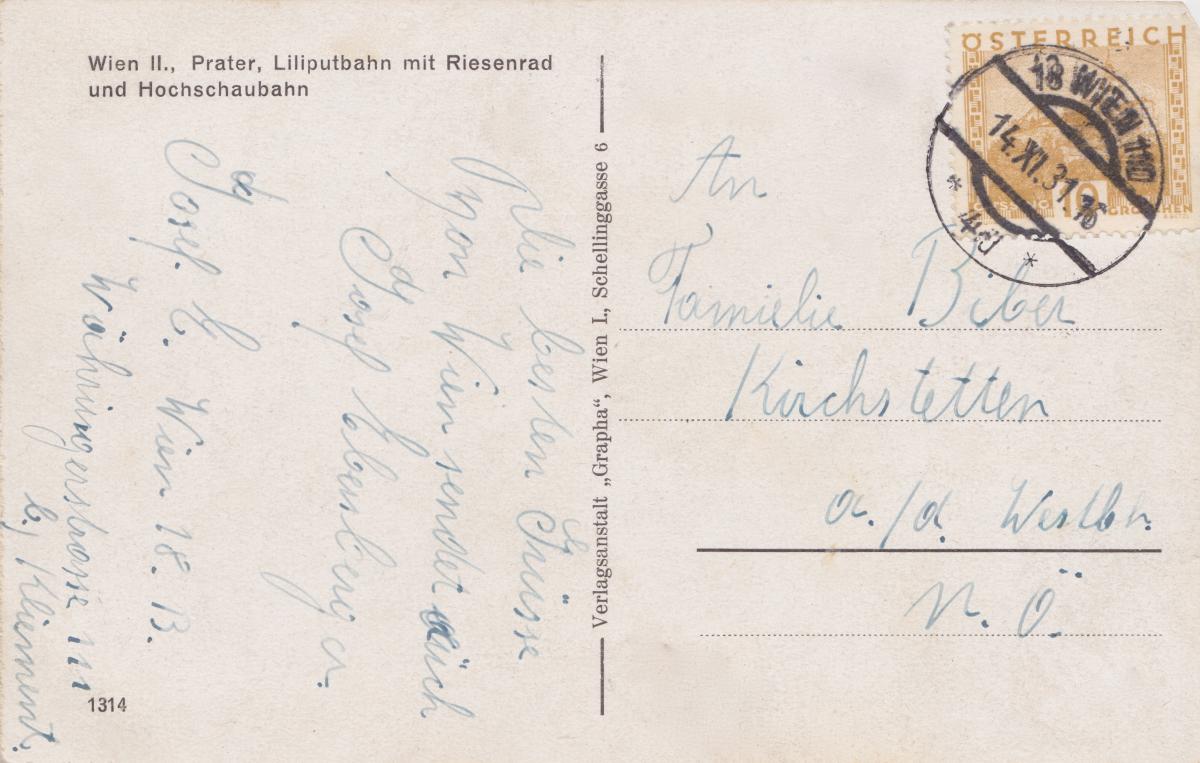 Wien II., Prater, Liliputbahn mit Riesenrad
und Hochschaubahn
Die besten Grüsse
von Wien sendet Euch
Josef Ebenberger.
Josef E. Wien 18. B.
Währingerstrasse 111
b. Kliement.
1314
Verlagsanstalt „Grapha“, Wien I., Schellinggasse 6
ÖSTERREICH
10
GROSCHEN
18 WIEN 110
14.XI.31.16
* *
An
Familie Biber
Kirchstetten
a./d. Westb.
N. Ö.